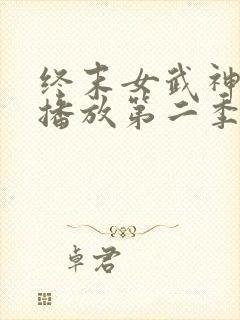 终末女武神
播放第二季
卓君